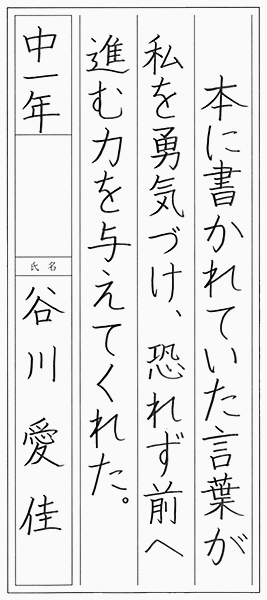 本に書かれていた言葉が
私を勇気づけ、恐れず前へ
進む力を与えてくれた。
中一年
氏名
谷川愛佳